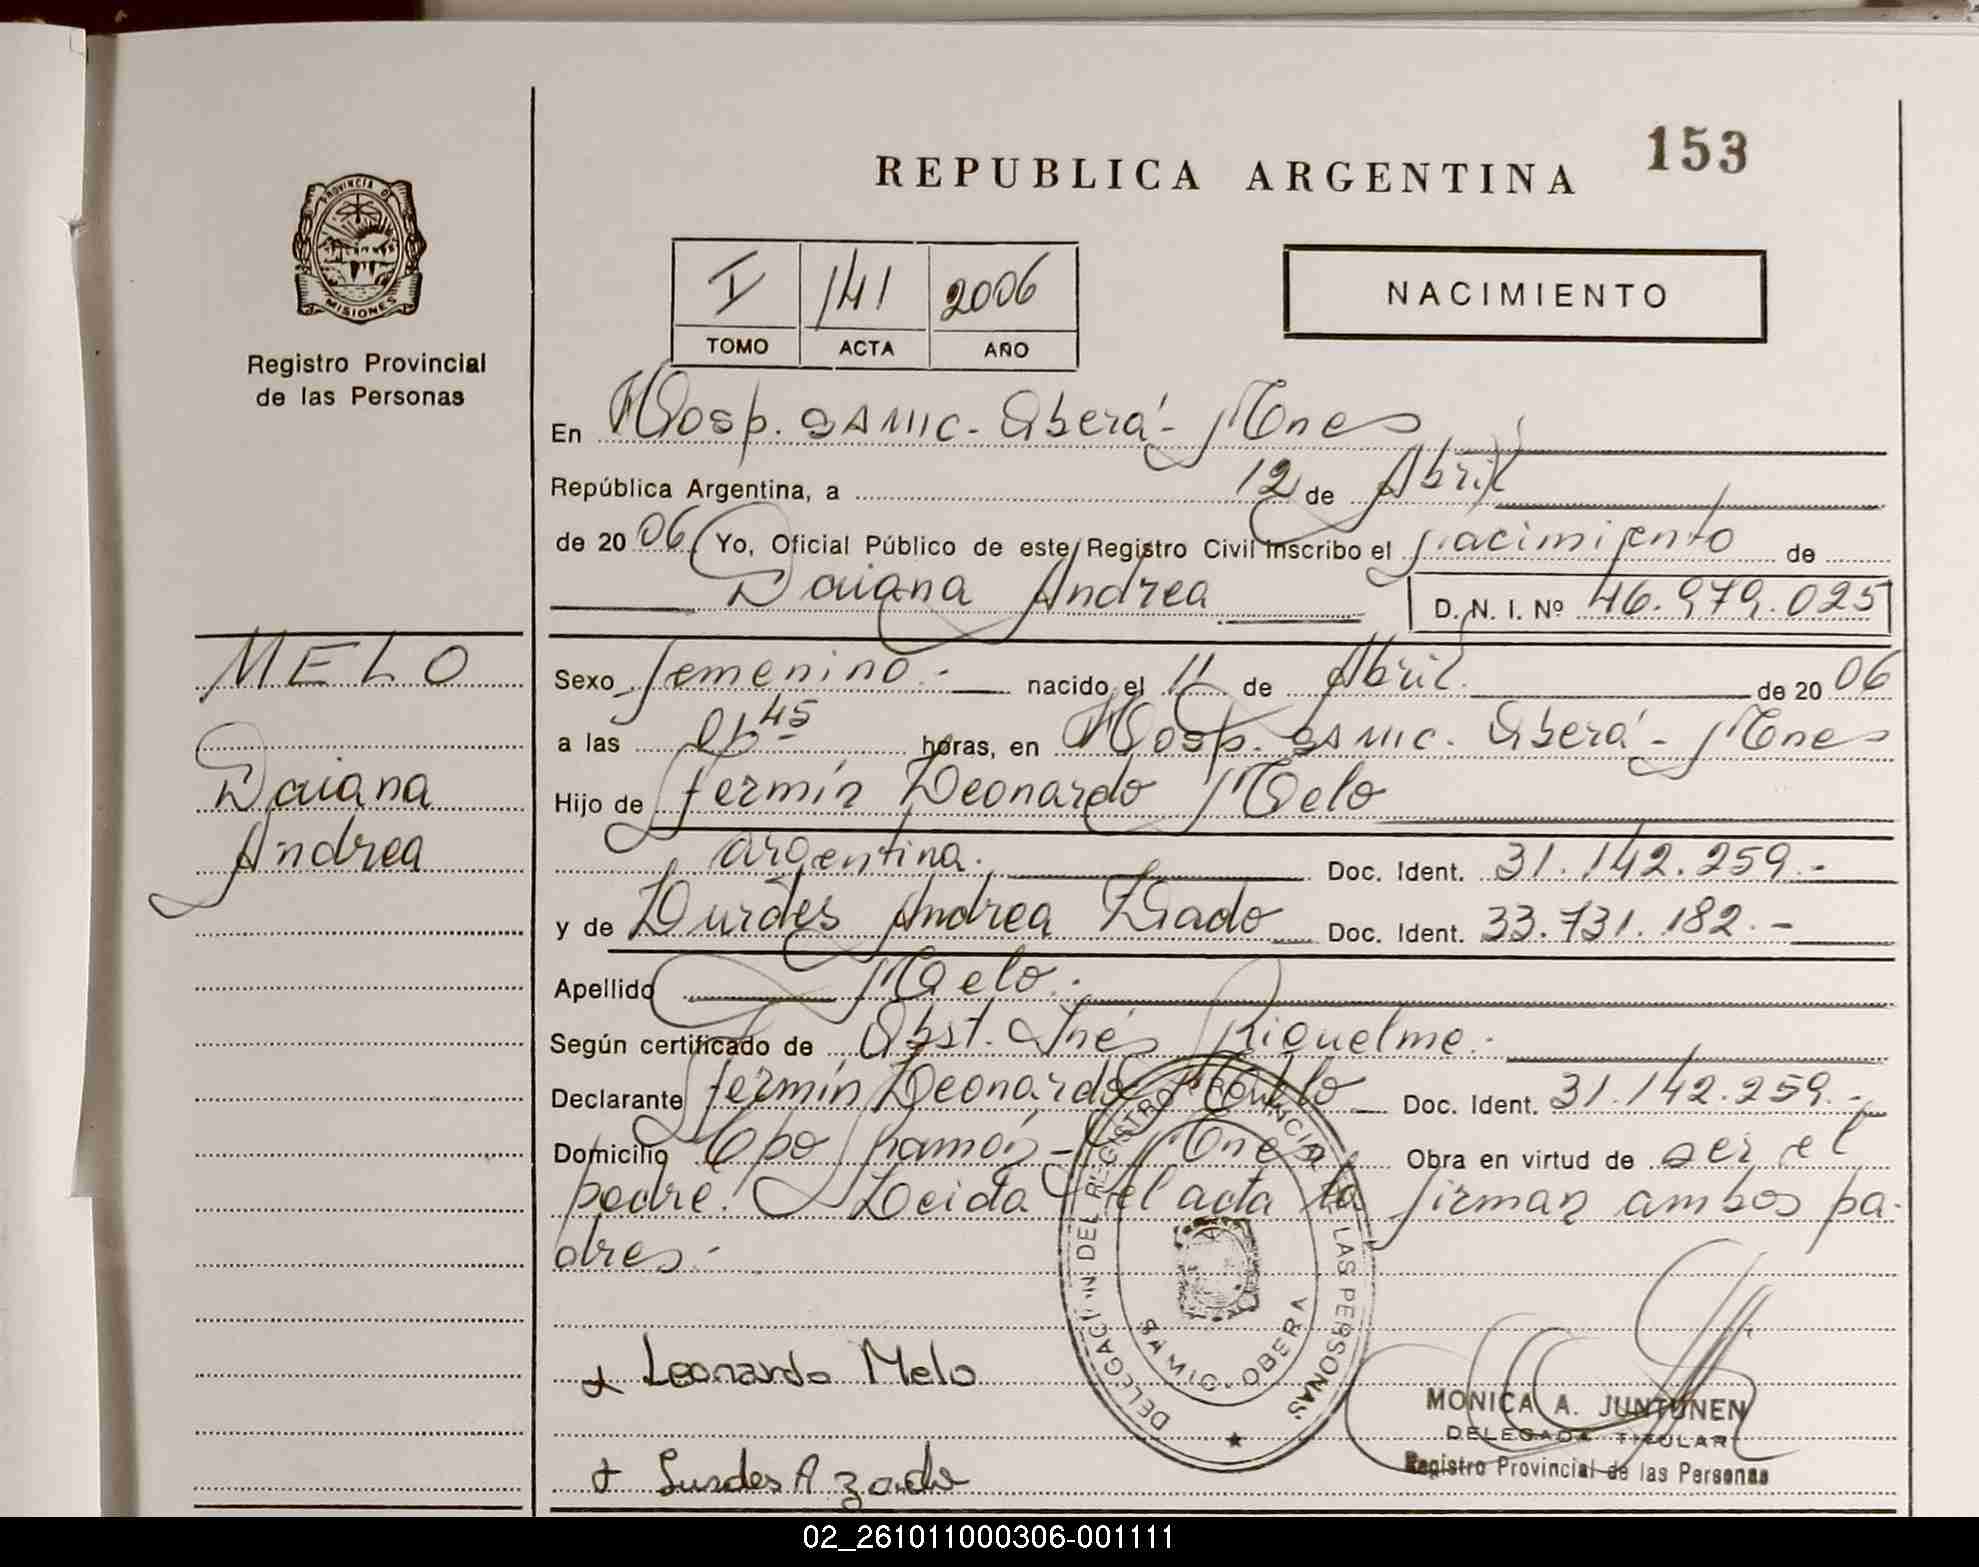 153
REPUBLICA ARGENTINA
PROVINCIA DE
MISIONES
Registro Provincial
de las Personas
I 141 2006
TOMO ACTA AÑO
NACIMIENTO
En Hosp. SAMIC. Oberá - Mnes
República Argentina, a 12 de Abril
de 2006 Yo, Oficial Público de este Registro Civil inscribo el nacimiento de
Daiana Andrea D.N.I. Nº 46.979.025
MELO
Daiana
Andrea
Sexo femenino.- nacido el 11 de Abril. de 2006
a las 45 horas, en Hosp. SAMIC. Oberá - Mnes
Hijo de Fermín Leonardo Melo
argentina. Doc. Ident. 31.142.259.-
y de Lurdes Andrea Zado Doc. Ident. 33.731.182.-
Apellido Melo.-
Según certificado de Obst. Inés Riquelme.-
Declarante Fermín Leonardo Melo Doc. Ident. 31.142.259.-
Domicilio Cpo Ramón - Mnes Obra en virtud de ser el
padre. Leida el acta la firman ambos pa-
dres.-
DELEGACION DEL REGISTRO PROVINCIAL DE LAS PERSONAS
SAMIC - OBERA
Leonardo Melo
Lurdes A Zado
MONICA A. JUNTUNEN
DELEGADA TITULAR
Registro Provincial de las Personas
02_261011000306-001111